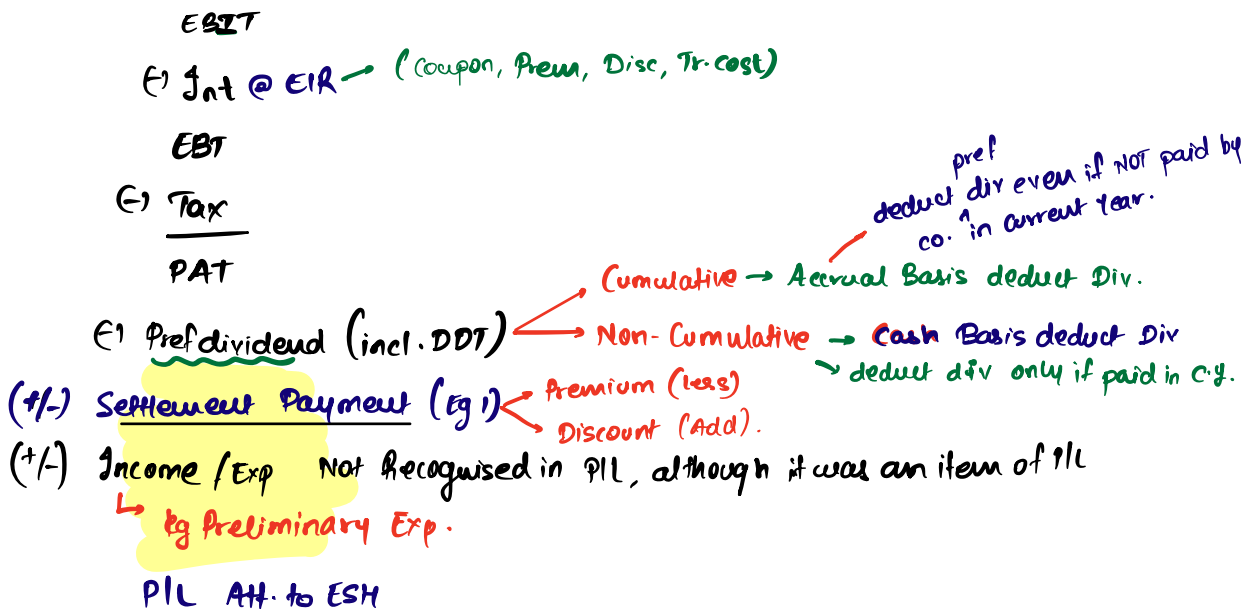 EBIT
(-) Int @ EIR → (Coupon, Prem, Disc, Tr. cost)
EBT
(-) Tax
PAT
pref
deduct div even if NOT paid by
co. ^ in current year.
Cumulative → Accrual Basis deduct Div.
(-) Pref dividend (incl. DDT)
Non-Cumulative → Cash Basis deduct Div
deduct div only if paid in C.y.
(+/-) Settlement Payment (Eg 1)
Premium (less)
Discount (Add).
(+/-) Income / Exp Not Recognised in P/L, although it was an item of P/L
Eg Preliminary Exp.
P/L Att. to ESH